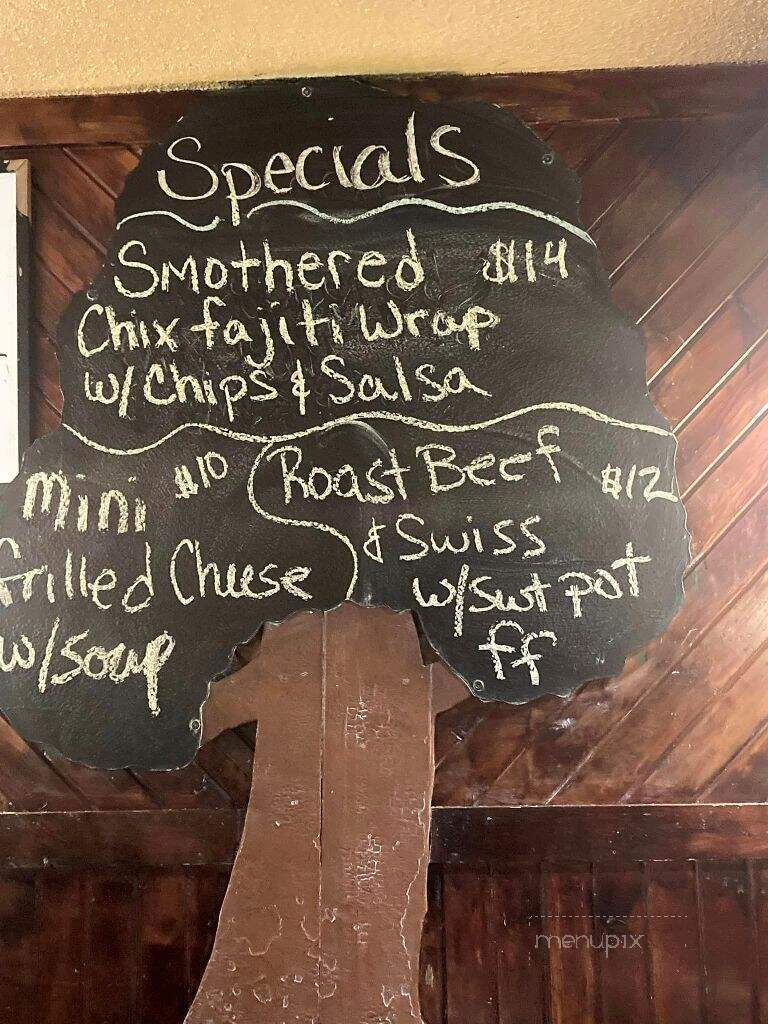 Specials
Smothered $14
Chix fajiti Wrap
w/Chips & Salsa
Mini $10
Grilled Cheese
w/soup
Roast Beef $12
& Swiss
w/swt pot
ff
menupix